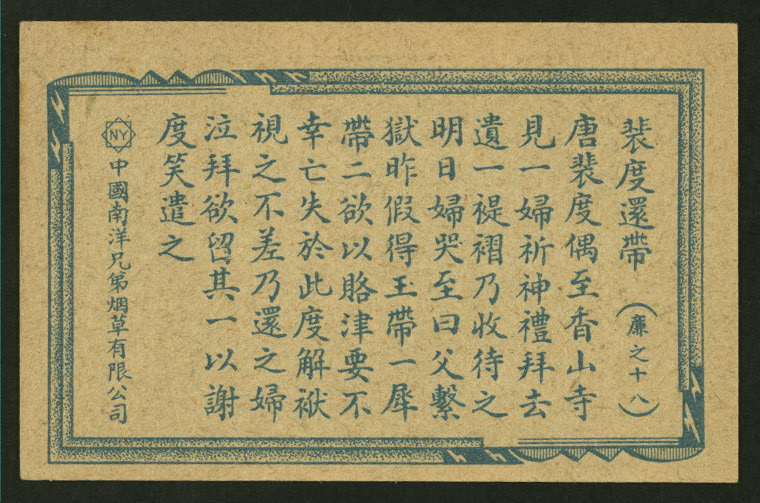 裴度還帶（廉之十八）
唐裴度偶至香山寺
見一婦祈神禮拜去
遺一褆褶乃收待之
明日婦哭至曰父繫
獄昨假得玉帶一犀
帶二欲以賂津要不
幸亡失於此度解袱
視之不差乃還之婦
泣拜欲留其一以謝
度笑遣之
NY
中國南洋兄弟烟草有限公司